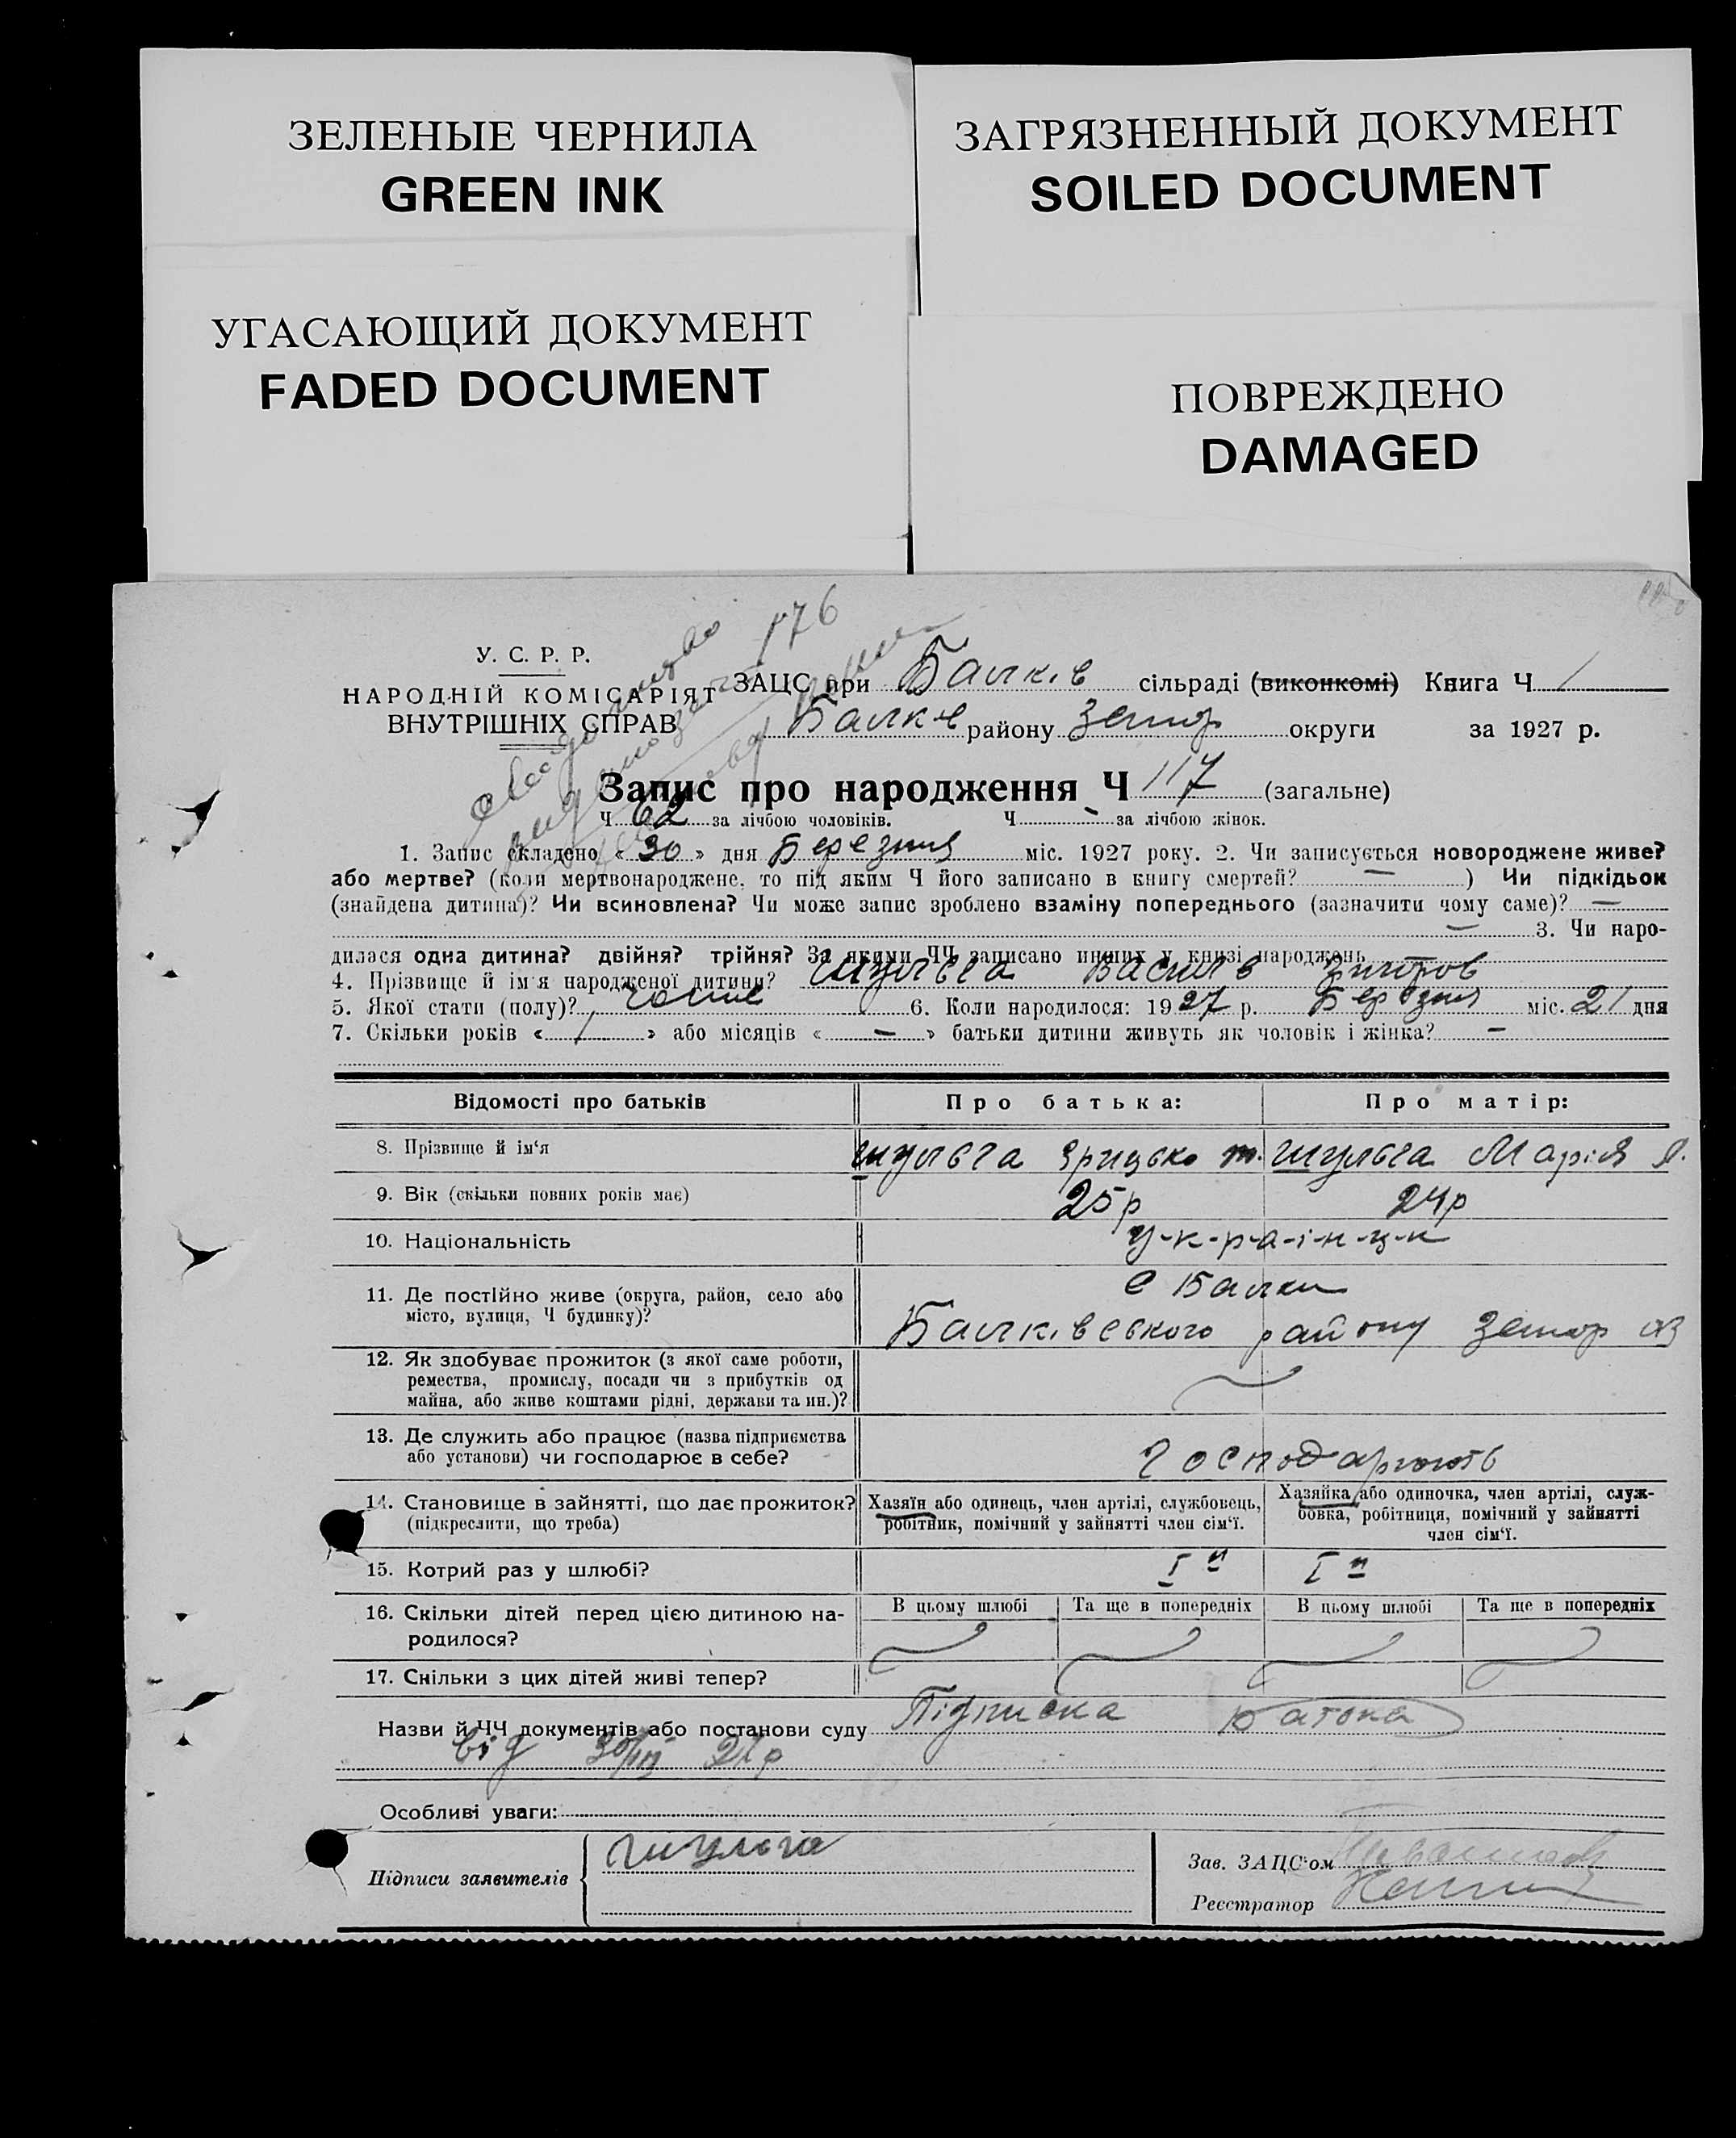 ЗЕЛЕНЫЕ ЧЕРНИЛА
GREEN INK
ЗАГРЯЗНЕННЫЙ ДОКУМЕНТ
SOILED DOCUMENT
УГАСАЮЩИЙ ДОКУМЕНТ
FADED DOCUMENT
ПОВРЕЖДЕНО
DAMAGED
176
У. С. Р. Р.
НАРОДНІЙ КОМІСАРІЯТ
ВНУТРІШНІХ СПРАВ
ЗАЦС при Балків сільраді (виконкомі) Книга Ч 1
Балків району Запор округи за 1927 р.
Запис про народження Ч 117 (загальне)
Ч 62 за лічбою чоловіків. Ч - за лічбою жінок.
1. Запис складено « 30 » дня Березня міс. 1927 року. 2. Чи записується новороджене живе?
або мертве? (коли мертвонароджене, то під яким Ч його записано в книгу смертей? — ) Чи підкідьок
(знайдена дитина)? Чи всиновлена? Чи може запис зроблено взаміну попереднього (зазначити чому саме)? —
— 3. Чи наро-
дилася одна дитина? двійня? трійня? За якими ЧЧ записано инших у книзі народжень
4. Прізвище й ім'я народженої дитини? Шульга Василь
5. Якої стати (полу)? 6. Коли народилося: 1927 р. Березня міс. 21 дня
7. Скільки років « 1 » або місяців « — » батьки дитини живуть як чоловік і жінка? —
Відомості про батьків Про батька: Про матір:
8. Прізвище й ім'я Шульга Грицько Т. Шульга Марія Я.
9. Вік (скільки повних років має) 25 р 24 р
10. Національність у-к-р-а-і-н-ц-и
11. Де постійно живе (округа, район, село або
місто, вулиця, Ч будинку)? с Балки
Балківського району Запор
12. Як здобуває прожиток (з якої саме роботи,
ремества, промислу, посади чи з прибутків од
майна, або живе коштами рідні, держави та ин.)?
13. Де служить або працює (назва підприємства
або установи) чи господарює в себе? Господарюють
14. Становище в зайнятті, що дає прожиток?
(підкреслити, що треба)
Хазяїн або одинець, член артілі, службовець,
робітник, помічний у зайнятті член сім'ї.
Хазяйка або одиночка, член артілі, служ-
бовка, робітниця, помічний у зайнятті
член сім'ї.
15. Котрий раз у шлюбі? I й I й
16. Скільки дітей перед цією дитиною на-
родилося?
В цьому шлюбі Та ще в попередніх В цьому шлюбі Та ще в попередніх
17. Скільки з цих дітей живі тепер?
Назви й ЧЧ документів або постанови суду Підписка батька
від 30/III 27 р
Особливі уваги:
Підписи заявителів Шульга
Зав. ЗАЦС'ом
Реєстратор